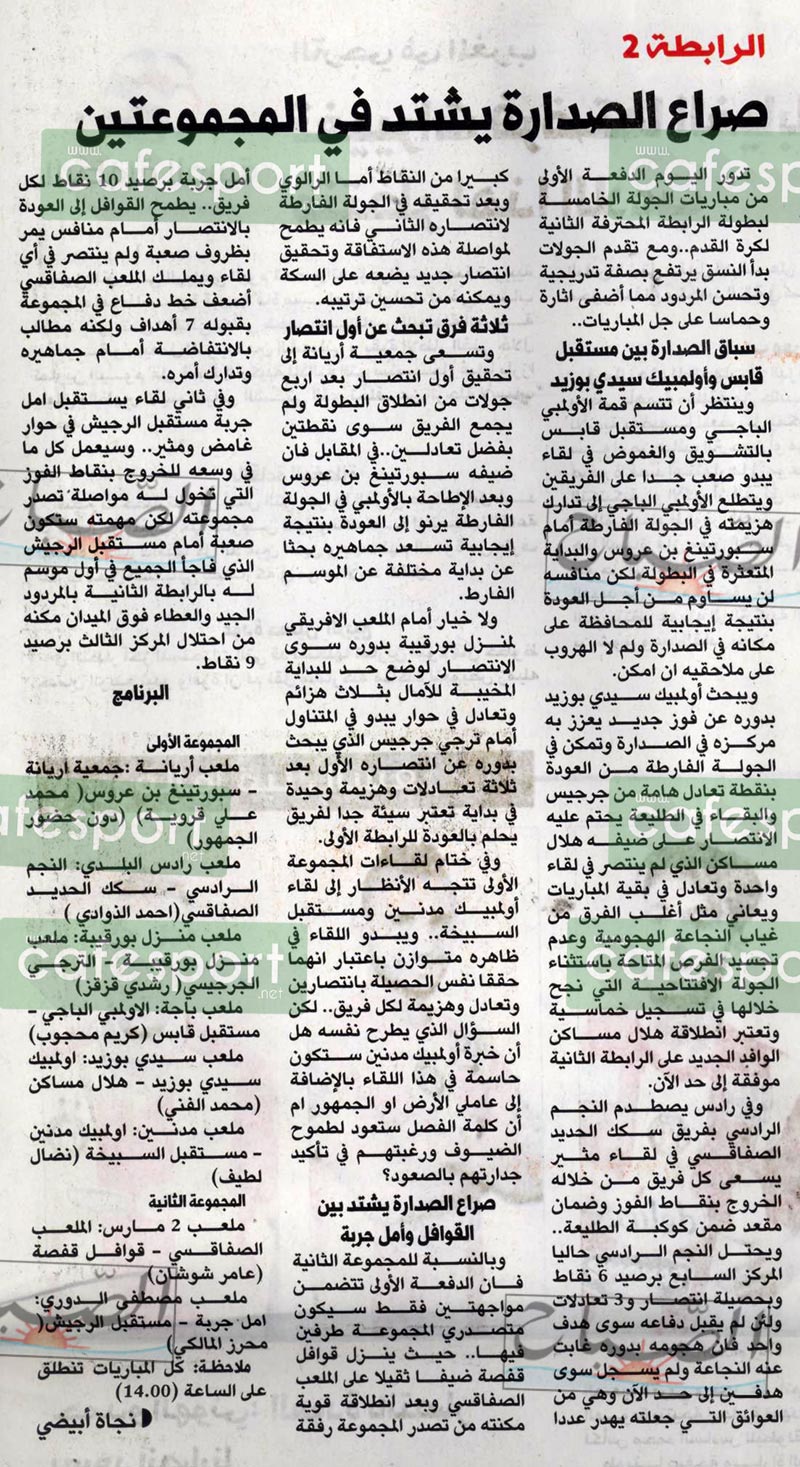 الرابطة 2
صراع الصدارة يشتد في المجموعتين
تدور اليوم الدفعة الأولى
من مباريات الجولة الخامسة
لبطولة الرابطة المحترفة الثانية
لكرة القدم..ومع تقدم الجولات
بدأ النسق يرتفع بصفة تدريجية
وتحسن المردود مما أضفى اثارة
وحماسا على جل المباريات..
سباق الصدارة بين مستقبل
قابس وأولمبيك سيدي بوزيد
وينتظر أن تتسم قمة الأولمبي
الباجي ومستقبل قابس
بالتشويق والغموض في لقاء
يبدو صعب جدا على الفريقين
ويتطلع الأولمبي الباجي إلى تدارك
هزيمته في الجولة الفارطة أمام
سبورتينغ بن عروس والبداية
المتعثرة في البطولة لكن منافسه
لن يساوم من أجل العودة
بنتيجة إيجابية للمحافظة على
مكانه في الصدارة ولم لا الهروب
على ملاحقيه ان امكن.
ويبحث أولمبيك سيدي بوزيد
بدوره عن فوز جديد يعزز به
مركزه في الصدارة وتمكن في
الجولة الفارطة من العودة
بنقطة تعادل هامة من جرجيس
والبقاء في الطليعة يحتم عليه
الانتصار على ضيفه هلال
مساكن الذي لم ينتصر في لقاء
واحدة وتعادل في بقية المباريات
ويعاني مثل أغلب الفرق من
غياب النجاعة الهجومية وعدم
تجسيد الفرص المتاحة باستثناء
الجولة الافتتاحية التي نجح
خلالها في تسجيل خماسية
وتعتبر انطلاقة هلال مساكن
الوافد الجديد على الرابطة الثانية
موفقة إلى حد الآن.
وفي رادس يصطدم النجم
الرادسي بفريق سكك الحديد
الصفاقسي في لقاء مثير
يسعى كل فريق من خلاله
الخروج بنقاط الفوز وضمان
مقعد ضمن كوكبة الطليعة..
ويحتل النجم الرادسي حاليا
المركز السابع برصيد 6 نقاط
وبحصيلة انتصار و3 تعادلات
ولئن لم يقبل دفاعه سوى هدف
واحد فان هجومه بدوره غابت
عنه النجاعة ولم يسجل سوى
هدفين إلى حد الآن وهي من
العوائق التي جعلته يهدر عددا
كبيرا من النقاط أما الرالوي
وبعد تحقيقه في الجولة الفارطة
لانتصاره الثاني فانه يطمح
لمواصلة هذه الاستفاقة وتحقيق
انتصار جديد يضعه على السكة
ويمكنه من تحسين ترتيبه.
ثلاثة فرق تبحث عن أول انتصار
وتسعى جمعية أريانة إلى
تحقيق أول انتصار بعد اربع
جولات من انطلاق البطولة ولم
يجمع الفريق سوى نقطتين
بفضل تعادلين..في المقابل فان
ضيفه سبورتينغ بن عروس
وبعد الإطاحة بالأولمبي في الجولة
الفارطة يرنو إلى العودة بنتيجة
إيجابية تسعد جماهيره بحثا
عن بداية مختلفة عن الموسم
الفارط.
ولا خيار أمام الملعب الافريقي
لمنزل بورقيبة بدوره سوى
الانتصار لوضع حد للبداية
المخيبة للآمال بثلاث هزائم
وتعادل في حوار يبدو في المتناول
أمام ترجي جرجيس الذي يبحث
بدوره عن انتصاره الأول بعد
ثلاثة تعادلات وهزيمة وحيدة
في بداية تعتبر سيئة جدا لفريق
يحلم بالعودة للرابطة الأولى.
وفي ختام لقاءات المجموعة
الأولى تتجه الأنظار إلى لقاء
أولمبيك مدنين ومستقبل
السبيخة.. ويبدو اللقاء في
ظاهره متوازن باعتبار انهما
حققا نفس الحصيلة بانتصارين
وتعادل وهزيمة لكل فريق.. لكن
السؤال الذي يطرح نفسه هل
أن خبرة أولمبيك مدنين ستكون
حاسمة في هذا اللقاء بالإضافة
إلى عاملي الأرض او الجمهور ام
أن كلمة الفصل ستعود لطموح
الضيوف ورغبتهم في تأكيد
جدارتهم بالصعود؟
صراع الصدارة يشتد بين
القوافل وأمل جربة
وبالنسبة للمجموعة الثانية
فان الدفعة الأولى تتضمن
مواجهتين فقط سيكون
متصدري المجموعة طرفين
فيها.. حيث ينزل قوافل
قفصة ضيفا ثقيلا على الملعب
الصفاقسي وبعد انطلاقة قوية
مكنته من تصدر المجموعة رفقة
أمل جربة برصيد 10 نقاط لكل
فريق.. يطمح القوافل إلى العودة
بالانتصار أمام منافس يمر
بظروف صعبة ولم ينتصر في أي
لقاء ويملك الملعب الصفاقسي
أضعف خط دفاع في المجموعة
بقبوله 7 أهداف ولكنه مطالب
بالانتفاضة أمام جماهيره
وتدارك أمره.
وفي ثاني لقاء يستقبل امل
جربة مستقبل الرجيش في حوار
غامض ومثير.. وسيعمل كل ما
في وسعه للخروج بنقاط الفوز
التي تخول له مواصلة تصدر
مجموعته لكن مهمته ستكون
صعبة أمام مستقبل الرجيش
الذي فاجأ الجميع في أول موسم
له بالرابطة الثانية بالمردود
الجيد والعطاء فوق الميدان مكنه
من احتلال المركز الثالث برصيد
9 نقاط.
البرنامج
المجموعة الأولى
ملعب أريانة :جمعية اريانة
- سبورتينغ بن عروس( محمد
علي قروية) (دون حضور
الجمهور)
ملعب رادس البلدي: النجم
الرادسي - سكك الحديد
الصفاقسي(احمد الذوادي )
ملعب منزل بورقيبة: ملعب
منزل بورقيبة - الترجي
الجرجيسي( رشدي قزقز)
ملعب باجة: الاولمبي الباجي -
مستقبل قابس (كريم محجوب)
ملعب سيدي بوزيد: اولمبيك
سيدي بوزيد - هلال مساكن
(محمد الفني)
ملعب مدنين: اولمبيك مدنين
- مستقبل السبيخة (نضال
لطيف)
المجموعة الثانية
ملعب 2 مارس: الملعب
الصفاقسي - قوافل قفصة
(عامر شوشان)
ملعب مصطفى الدوري:
امل جربة - مستقبل الرجيش(
محرز المالكي)
ملاحظة: كل المباريات تنطلق
على الساعة (14.00)
نجاة أبيضي
www.
cafesport
.net
الصباح